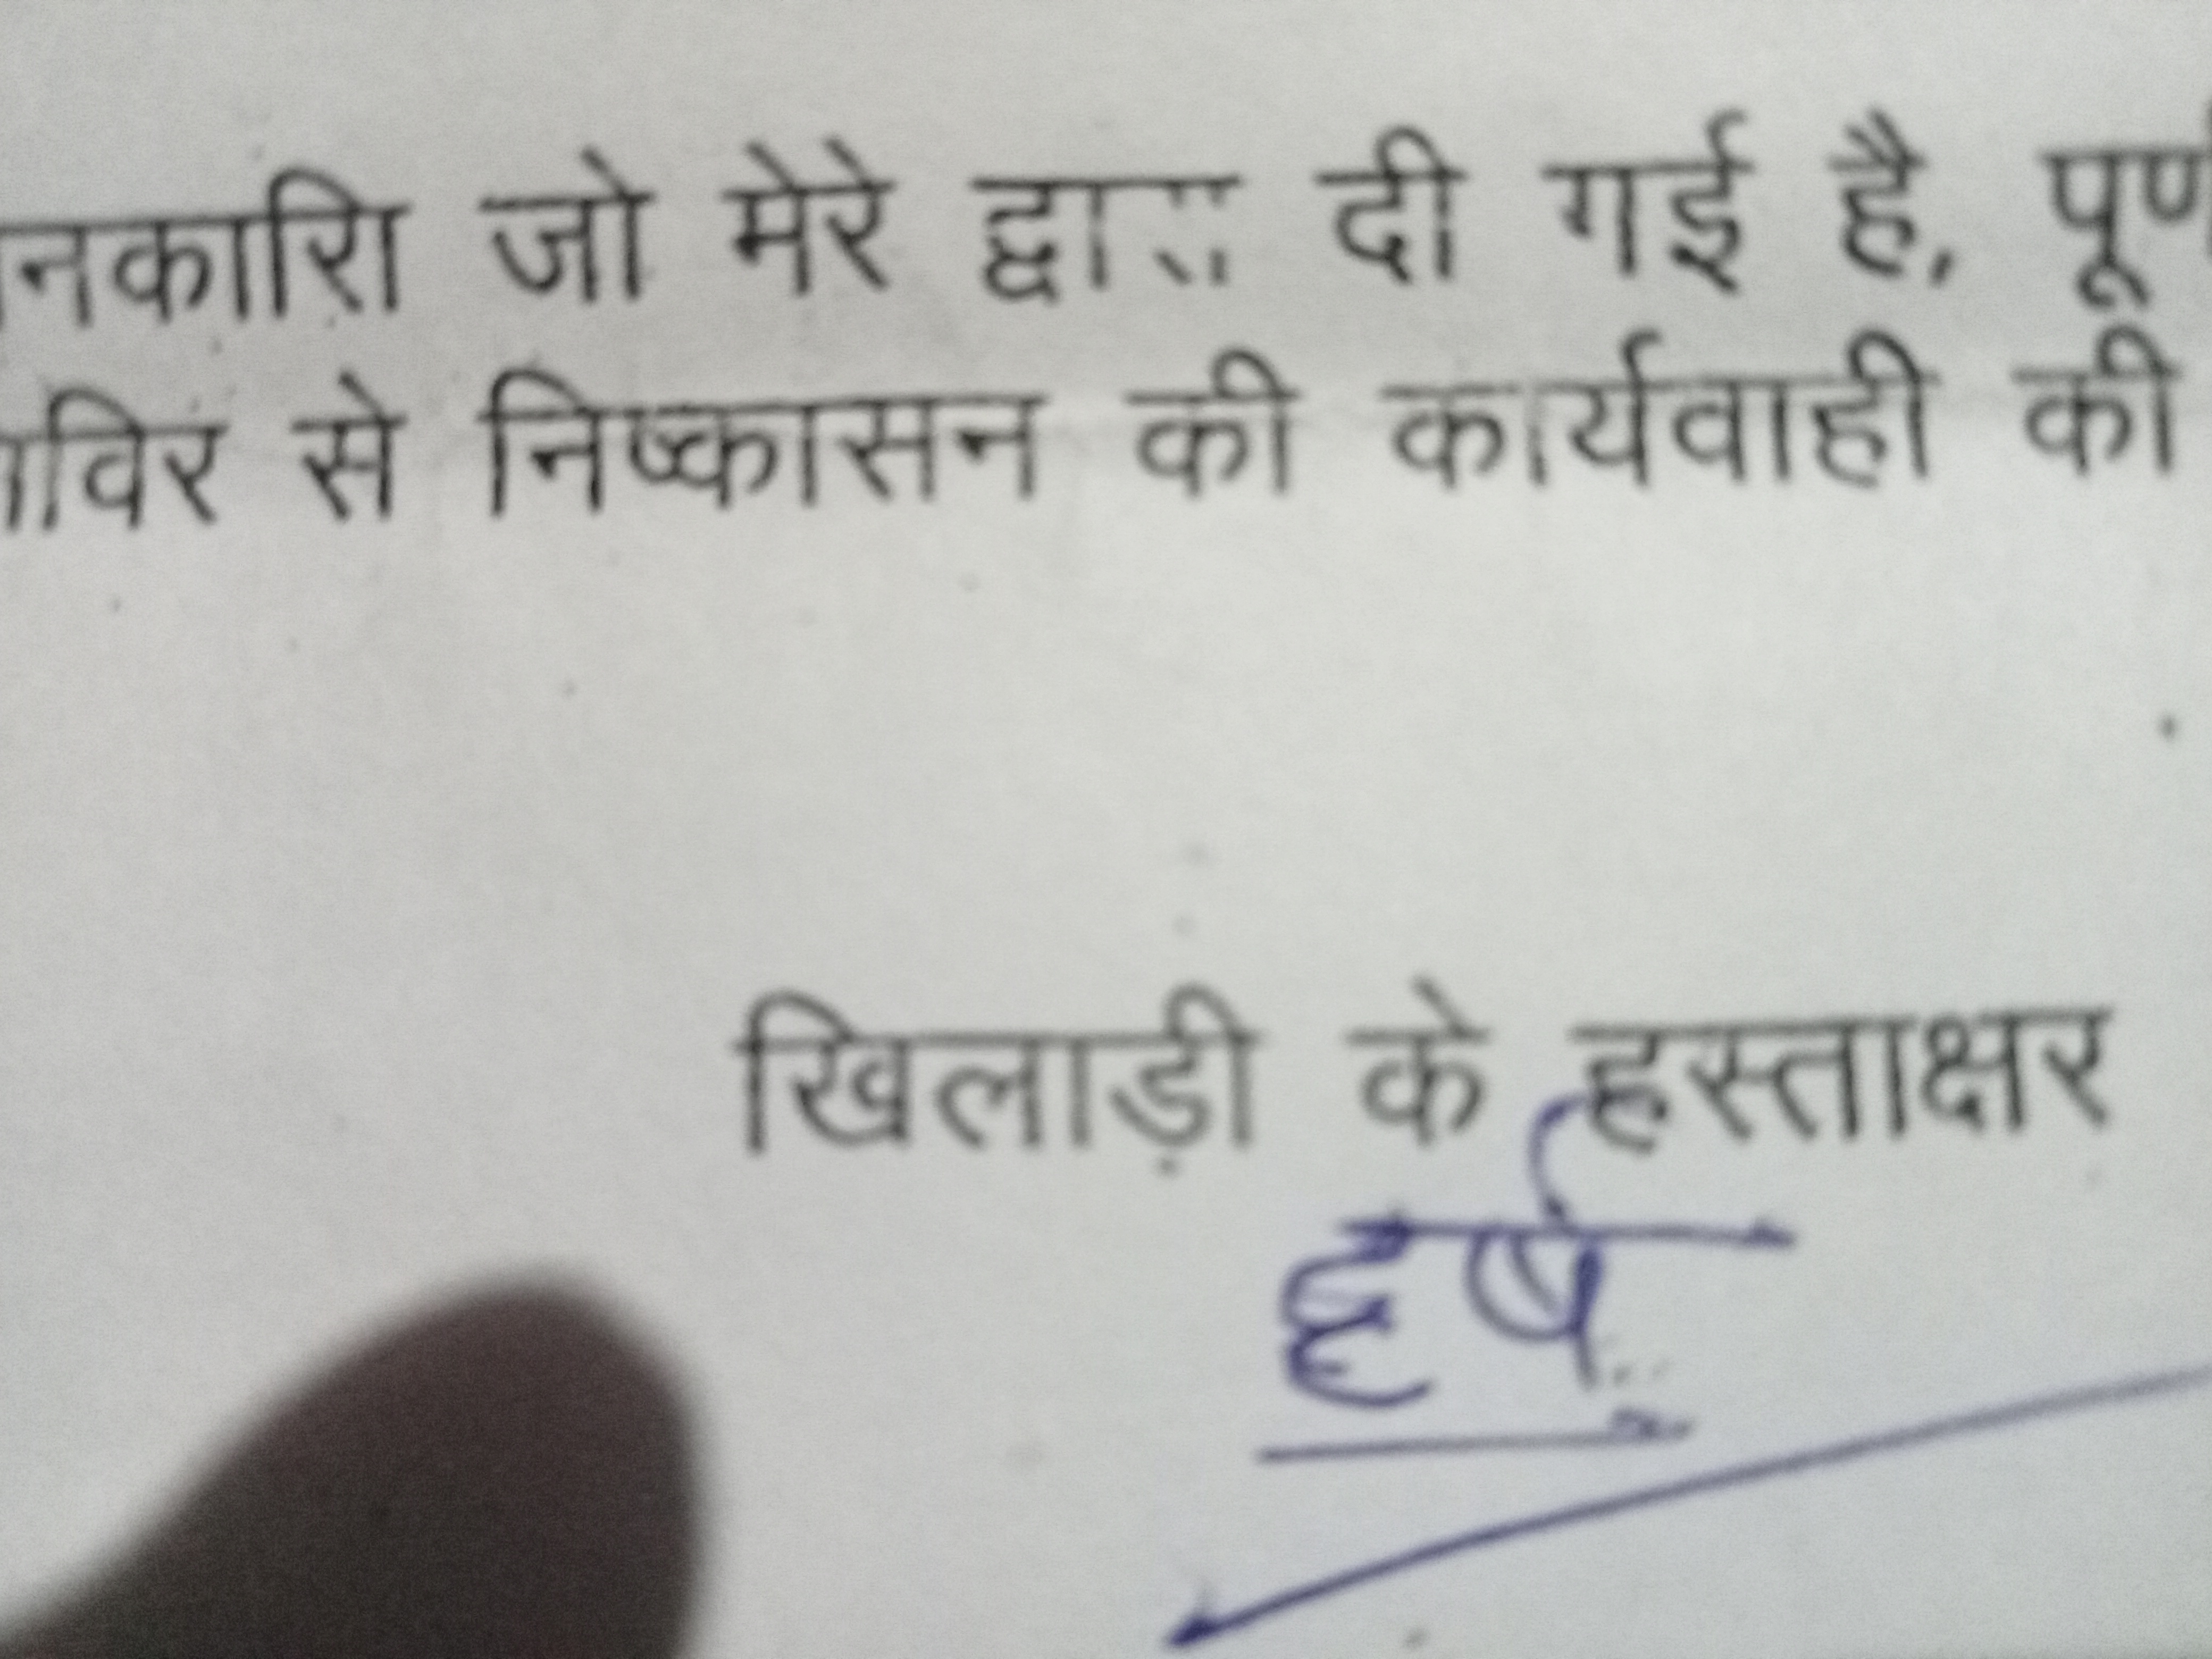 नकारि जो मेरे द्वारा दी गई है, पूर्ण
विर से निष्कासन की कार्यवाही की
खिलाड़ी के हस्ताक्षर
हर्ष